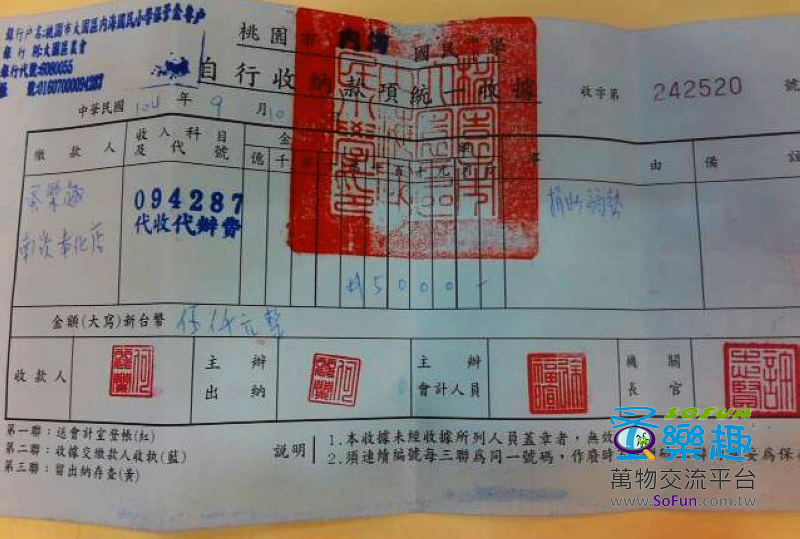 銀行戶名:桃園市大園區內海國民小學保管金專戶
銀行 別:大園區農會
銀行代號:6080055
帳 號:01607000094287
桃園市 內海 國民小學
自行收納款項統一收據
收字第 242520 號
中華民國 104 年 9 月 10
繳款人 收入科目及代號 金 事 由 備 註
億 千 百
蔡樂趣 094287 捐助弱勢
代收代辦費
南崁奉化店
$5000-
金額(大寫)新台幣 伍仟元整
收款人 主辦出納 主辦會計人員 機關長官
第一聯:送會計室登帳(紅)
第二聯:收據交繳款人收執(藍)
第三聯:留出納存查(黃)
說明 1.本收據未經收據所列人員蓋章者,無效
2.須連續編號每三聯為同一號碼,作廢時
SOFUN
樂趣
萬物交流平台
www.SoFun.com.tw